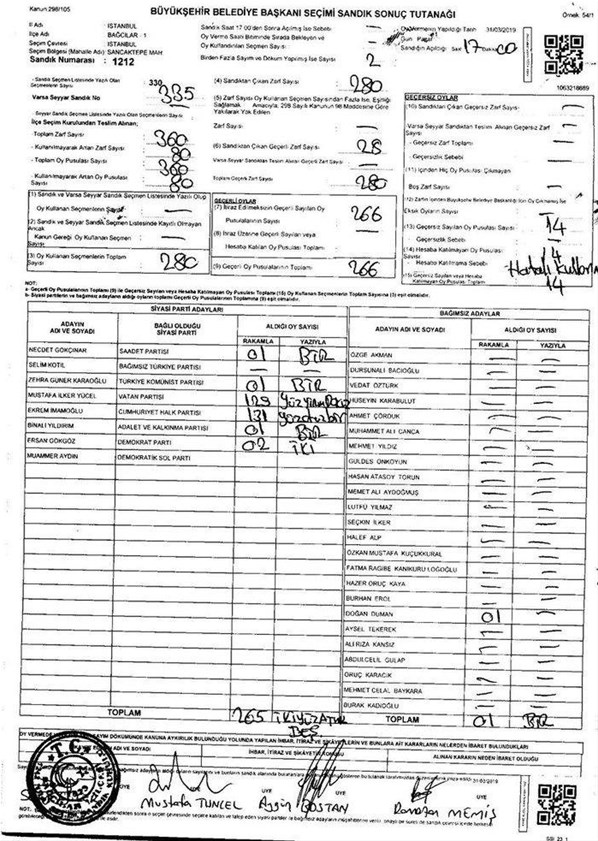 Kanun 298/105
BÜYÜKŞEHİR BELEDİYE BAŞKANI SEÇİMİ SANDIK SONUÇ TUTANAĞI
Örnek: 54/1
İl Adı : İSTANBUL
İlçe Adı : BAĞCILAR - 1
Seçim Çevresi : İSTANBUL
Seçim Bölgesi (Mahalle Adı) : SANCAKTEPE MAH
Sandık Numarası : 1212
Sandık Saat 17:00'den Sonra Açılmış İse Sebebi
Oy Verme Saati Bitiminde Sırada Bekleyen ve
Oy Kullandırılan Seçmen Sayısı
Birden Fazla Sayım ve Döküm Yapılmış İse Sayısı 2
Oy Vermenin Yapıldığı Tarih : 31/03/2019
Gün : Pazar
Sandığın Açıldığı Saat 17 Dakika 00
1063218689
Sandık Seçmen Listesinde Yazılı Olan
Seçmenlerin Sayısı 330 335
Varsa Seyyar Sandık No
Seyyar Sandık Seçmen Listesinde Yazılı Olan
Seçmenlerin Sayısı
İlçe Seçim Kurulundan Teslim Alınan;
- Toplam Zarf Sayısı 360
- Kullanılmayarak Artan Zarf Sayısı 80
- Toplam Oy Pusulası Sayısı 360
- Kullanılmayarak Artan Oy Pusulası Sayısı 80
(1) Sandık ve Varsa Seyyar Sandık Listesinde Yazılı Olup
Oy Kullanan Seçmenlerin Sayısı
(2) Sandık ve Seyyar Sandık Listesinde Kayıtlı Olmayan Ancak
Kanun Gereği Oy Kullanan Seçmenlerin Sayısı
(3) Oy Kullanan Seçmenlerin Toplam Sayısı 280
(4) Sandıktan Çıkan Zarf Sayısı 280
(5) Zarf Sayısı Oy Kullanan Seçmen Sayısından Fazla İse, Eşitliği
Sağlamak Amacıyla; 298 Sayılı Kanunun 98 Maddesine Göre
Yakılarak Yok Edilen
Zarf Sayısı : —
(6) Sandıktan Çıkan Geçerli Zarf Sayısı : 28
Varsa Seyyar Sandıktan Teslim Alınan Geçerli Zarf Sayısı : —
Toplam Geçerli Zarf Sayısı : 280
GEÇERLİ OYLAR
(7) İtiraz Edilmeksizin Geçerli Sayılan Oy
Pusulalarının Sayısı 266
(8) İtiraz Üzerine Geçerli Sayılan veya
Hesaba Katılan Oy Pusulaları Toplamı : —
(9) Geçerli Oy Pusulalarının Toplamı : 266
GEÇERSİZ OYLAR
(10) Sandıktan Çıkan Geçersiz Zarf Sayısı : —
Varsa Seyyar Sandıktan Teslim Alınan Geçersiz Zarf Sayısı : —
- Geçersiz Zarf Toplamı : —
- Geçersizlik Sebebi : —
(11) İçinden Hiç Oy Pusulası Çıkmayan
Boş Zarf Sayısı : —
(12) Zarfın İçinden Büyükşehir Belediye Başkanlığından Oy Çıkmamış İse
Eksik Oyların Sayısı : —
(13) Geçersiz Sayılan Oy Pusulası Sayısı : 14
Geçersizlik Sebebi : —
(14) Hesaba Katılmayan Oy Pusulası Sayısı : 14
Hesaba Katılmama Sebebi : Hatalı Kullanım
(15) Geçersiz Sayılan veya Hesaba
Katılmayan Oy Pusulası Toplamı : 14
NOT:
a- Geçerli Oy Pusulalarının Toplamı (9) ile Geçersiz Sayılan veya Hesaba Katılmayan Oy Pusulası Toplamı (15) Oy Kullanan Seçmenlerin Toplam Sayısına (3) eşit olmalıdır.
b- Siyasi partilerin ve bağımsız adayların aldığı oyların toplamı Geçerli Oy Pusulalarının Toplamına (9) eşit olmalıdır.
SİYASİ PARTİ ADAYLARI
BAĞIMSIZ ADAYLAR
ADAYIN ADI VE SOYADI BAĞLI OLDUĞU SİYASİ PARTİ ALDIĞI OY SAYISI RAKAMLA YAZIYLA
ADAYIN ADI VE SOYADI ALDIĞI OY SAYISI RAKAMLA YAZIYLA
NECDET GÖKÇINAR SAADET PARTİSİ 01 BİR
SELİM KOTİL BAĞIMSIZ TÜRKİYE PARTİSİ —
ZEHRA GÜNER KARAOĞLU TÜRKİYE KOMÜNİST PARTİSİ 01 BİR
MUSTAFA İLKER YÜCEL VATAN PARTİSİ 129 yüzyirmidokuz
EKREM İMAMOĞLU CUMHURİYET HALK PARTİSİ 131 yüzotuzbir
BİNALİ YILDIRIM ADALET VE KALKINMA PARTİSİ 01 BİR
ERSAN GÖKGÖZ DEMOKRAT PARTİ 02 İKİ
MUAMMER AYDIN DEMOKRATİK SOL PARTİ
ÖZGE AKMAN — —
DURSUNALİ BACIOĞLU — —
VEDAT ÖZTÜRK — —
HÜSEYİN KARABULUT — —
AHMET ÇÖRDÜK — —
MUHAMMET ALİ CANCA — —
MEHMET YILDIZ — —
GÜLDES ÖNKOYUN — —
HASAN ATASOY TORUN — —
MEMET ALİ AYDOĞMUŞ — —
LUTFU YILMAZ — —
SEÇKİN İLKER — —
HALEF ALP — —
ÖZKAN MUSTAFA KÜÇÜKKURAL — —
FATMA RAGİBE KANIKURU LOĞOĞLU — —
HAZER ORUÇ KAYA — —
BURHAN EROL — —
DOĞAN DUMAN 01 —
AYSEL TEKEREK — —
ALİ RIZA KANSIZ — —
ABDULCELİL GULAP — —
ORUÇ KARACIK — —
MEHMET CELAL BAYKARA — —
BURAK KADIOĞLU — —
TOPLAM 265 İKİYÜZATMIŞ BEŞ
TOPLAM 01 BİR
OY VERMEDE SANDIK SAYIM DÖKÜMÜNDE KANUNA AYKIRILIK BULUNDUĞU YOLUNDA YAPILAN İHBAR, İTİRAZ VE ŞİKAYETLERİN VE BUNLARA AİT KARARLARIN NELERDEN İBARET BULUNDUKLARI
ADI VE SOYADI
İHBAR, İTİRAZ VE ŞİKAYETİN KONUSU
ALINAN KARARIN NEDEN İBARET OLDUĞU
31/03/2019
ÜYE ÜYE ÜYE
Mustafa TUNCEL
BOSTAN
Ramazan MEMİŞ
T.C.